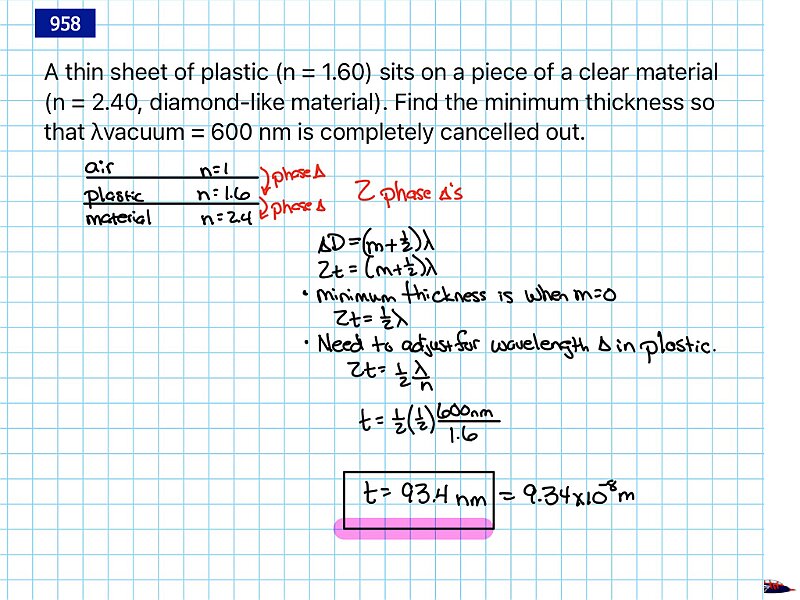 958
A thin sheet of plastic (n = 1.60) sits on a piece of a clear material
(n = 2.40, diamond-like material). Find the minimum thickness so
that λvacuum = 600 nm is completely cancelled out.
air n=1
plastic n=1.6
material n=2.4
phase Δ
phase Δ
2 phase Δ's
ΔD=(m+½)λ
2t=(m+½)λ
• minimum thickness is when m=0
2t=½λ
• Need to adjust for wavelength Δ in plastic.
2t=½ λ/n
t=½(½) 600nm/1.6
t= 93.4 nm = 9.34x10⁻⁸m